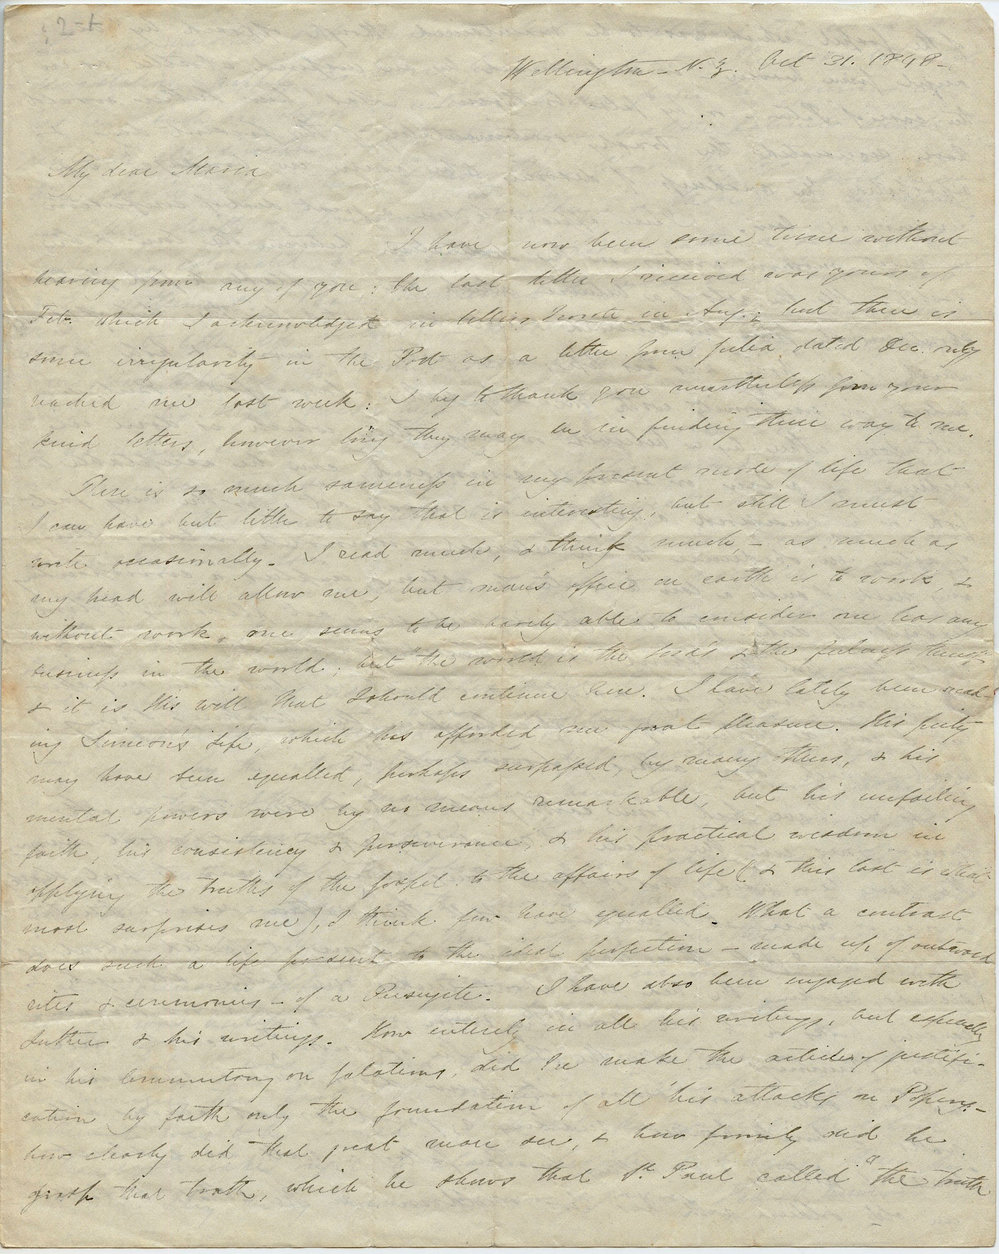 Wellington - N. Z. Oct 31. 1848 -
My dear Maria
I have now been some time without
hearing from any of you: the last letter I received was yours of
Feb. which I acknowledged in letter in Aug.; but there is
some irregularity in the Post as a letter from Julia, dated Dec. only
reached me last week: I beg to thank you nevertheless for your
kind letters, however long they may be in finding their way to me.
There is so much sameness in my present mode of life that
I can have but little to say that is interesting, but still I must
write occasionally. I read much, & think much, - as much as
my head will allow me, but man's office on earth is to work, &
without work, one seems to be barely able to consider one has any
business in the world; but "the world is the Lord's & the fulness thereof
& it is His will that I should continue here. I have lately been read-
ing Simeon's Life, which has afforded me great pleasure. His piety
may have been equalled, perhaps surpassed, by many others, & his
mental powers were by no means remarkable, but his unfailing
faith, his consistency & perseverance, & his practical wisdom in
applying the truths of the gospel to the affairs of life (& this last is what
most surprises me), I think few have equalled. What a contrast
does such a life present to the ideal perfection - made up of outward
rites & ceremonies - of a Puseyite. I have also been engaged with
Luther & his writings. How entirely in all his writings, but especially
in his Commentary on Galatians did he make the article of justifi-
cation by faith only the foundation of all his attacks on Popery -
how clearly did that great man see, & how firmly did he
grasp that truth, which he shows that St. Paul called "the truth